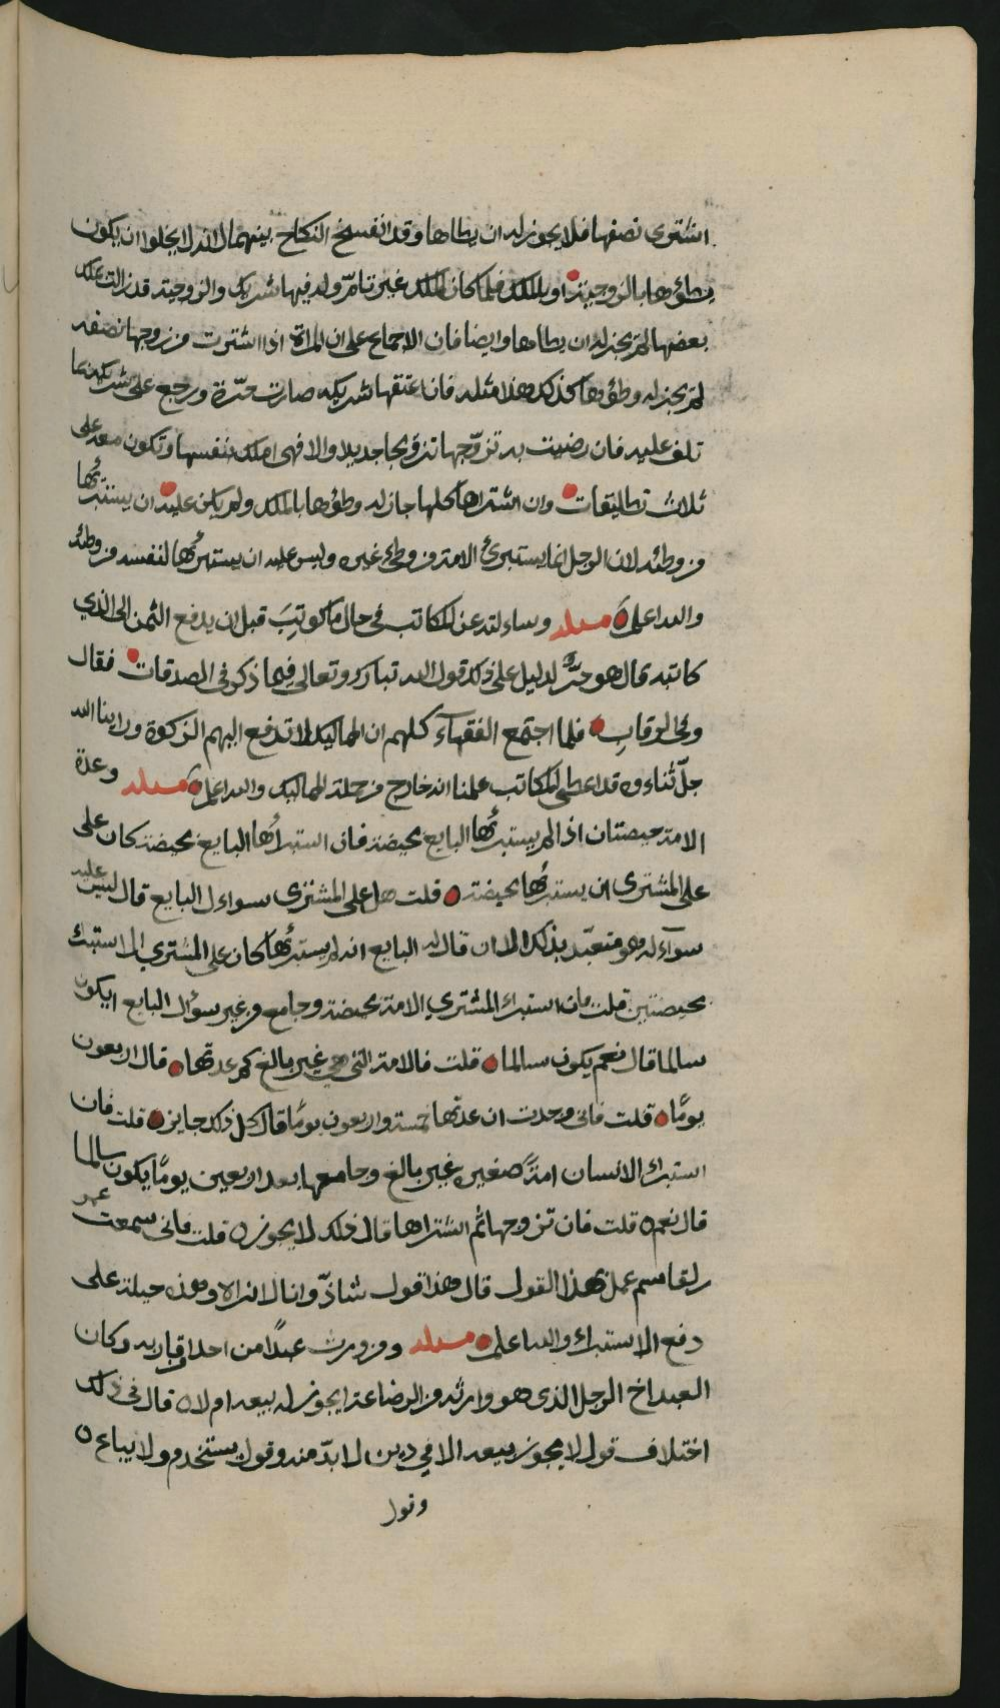 اشترى نصفها فلا يجوز له ان يطاها وقد انفسخ النكاح بينهما لانه لا يخلوا ان يكون
يطؤها بالزوجية او بالملك فلما كان الملك غير تام وله فيها شريك والزوجية قد زالت بملك
بعضها لم يجز له ان يطاها وايضا فان الاجماع على ان المراة اذا اشترت من زوجها نصفه
لم يجز له وطؤها فكذلك هذا مثله فان اعتقها شريكه صارت حرّة ورجع على شريكه بما
تلف عليه فان رضيت به تزوّجها تزويجا جديدا والا فهى املك بنفسها وتكون معه على
ثلاث تطليقات وان اشتراها كلها جاز له وطؤها بالملك ولم يكن عليه ان يستبرئها
من وطئه لان الرجل انما يستبرئ الامة من وطئ غيره وليس عليه ان يستبرئها لنفسه من وطئه
والله اعلم مسلة وساءلته عن المكاتب فى حال ما كوتِبَ قبل ان يدفع الثمن الى الذي
كاتبه قال هو حرٌّ لدليل على ذلك قول الله تبارك وتعالى فيما ذكر فى الصدقات فقال
وفى الرقابِ فلما اجتمع الفقهاء كلهم ان المماليك لا تدفع اليهم الزكوة وراينا الله
جلّ ثناءوه قد اعطى المكاتب علمنا انه خارج من جملة المماليك والله اعلم مسلة وعدة
الامة حيضتان اذا لم يستبرئها البايع بحيضة فان استبراها البايع بحيضة كان على
على المشترى ان يستبرئها بحيضة قلت هل على المشترى سواءل البايع قال ليس عليه
سوآءله وهو متعبّد بذلك الا ان قال له البايع انه لم يستبرئها كان على المشتري الاستبراء
بحيضتين قلت فان استبراء المشتري الامة بحيضة وجامع من غير سؤال البايع ايكون
سالما قال نعم يكون سالما قلت فالامة التى هى غير بالغ كم عدتها قال اربعون
يومًا قلت فانى وجدت ان عدتها خمسة واربعون يومًا قال كل ذلك جايز قلت فان
استبراء الانسان امةً صغيرة غير بالغ وجامعها بعد اربعين يومًا يكون سالما
قال نعم قلت فان تزوجها ثم اشتراها قال ذلك لا يجوز قلت فانى سمعت عمر
بن القاسم عمل بهذا القول قال وهذا قول شاذّ وانا لا اراه وهذه حيلة على
دفع الاستبراء والله اعلم مسلة ومن ورث عبدًا من احد اقاربه وكان
العبد اخ الرجل الذى هو وارثه من الرضاعة ايجوز له بيعه ام لا قال فى ذلك
اختلاف قول لا يجوز بيعه الا في دين لا بدّ منه وقول يستخدم ولا يباع
وقول